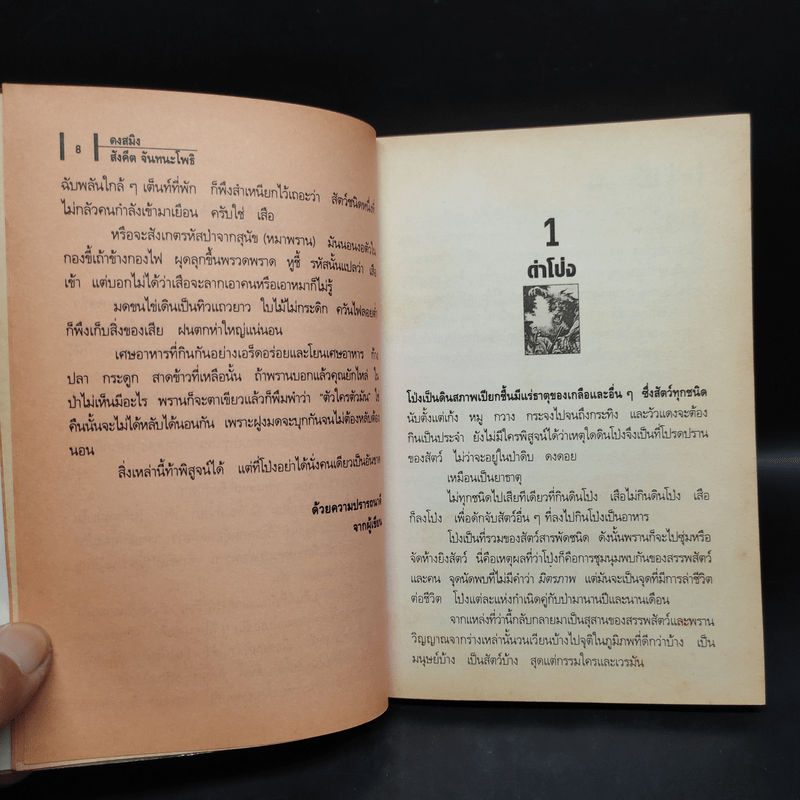 8
ดงสมิง
สังคีต จันทนะโพธิ
ฉับพลันใกล้ ๆ เต็นท์ที่พัก ก็พึงสำเหนียกไว้เถอะว่า สัตว์ชนิดหนึ่งที่
ไม่กลัวคนกำลังเข้ามาเยือน ครับใช่ เสือ
หรือจะสังเกตรหัสป่าจากสุนัข (หมาพราน) มันนอนงอตัวใน
กองขี้เถ้าข้างกองไฟ ผุดลุกขึ้นพรวดพราด หูชี้ รหัสนั้นแปลว่า เสือ
เข้า แต่บอกไม่ได้ว่าเสือจะลากเอาคนหรือเอาหมาก็ไม่รู้
มดขนไข่เดินเป็นทิวแถวยาว ใบไม้ไม่กระดิก ควันไฟลอยต่ำ
ก็พึงเก็บสิ่งของเสีย ฝนตกห่าใหญ่แน่นอน
เศษอาหารที่กินกันอย่างเอร็ดอร่อยและโยนเศษอาหาร ก้าง
ปลา กระดูก สาดข้าวที่เหลือนั้น ถ้าพรานบอกแล้วคุณยักไหล่ ใน
ป่าไม่เห็นมีอะไร พรานก็จะตาเขียวแล้วก็พึมพำว่า "ตัวใครตัวมัน" ใช่
คืนนั้นจะไม่ได้หลับได้นอนกัน เพราะฝูงมดจะบุกกันจนไม่ต้องหลับต้อง
นอน
สิ่งเหล่านี้ท้าพิสูจน์ได้ แต่ที่โป่งอย่าได้นั่งคนเดียวเป็นอันขาด
ด้วยความปรารถนาดี
จากผู้เขียน
1
ด่าโป่ง
โป่งเป็นดินสภาพเปียกชื้นมีแร่ธาตุของเกลือและอื่น ๆ ซึ่งสัตว์ทุกชนิด
นับตั้งแต่เก้ง หมู กวาง กระจงไปจนถึงกระทิง และวัวแดงจะต้อง
กินเป็นประจำ ยังไม่มีใครพิสูจน์ได้ว่าเหตุใดดินโป่งจึงเป็นที่โปรดปราน
ของสัตว์ ไม่ว่าจะอยู่ในป่าดิบ ดงดอย
เหมือนเป็นยาธาตุ
ไม่ทุกชนิดไปเสียทีเดียวที่กินดินโป่ง เสือไม่กินดินโป่ง เสือ
ก็ลงโป่ง เพื่อดักจับสัตว์อื่น ๆ ที่ลงไปกินโป่งเป็นอาหาร
โป่งเป็นที่รวมของสัตว์สารพัดชนิด ดังนั้นพรานก็จะไปซุ่มหรือ
จัดห้างยิงสัตว์ นี่คือเหตุผลที่ว่าโป่งก็คือการชุมนุมพบกันของสรรพสัตว์
และคน จุดนัดพบที่ไม่มีคำว่า มิตรภาพ แต่มันจะเป็นจุดที่มีการล่าชีวิต
ต่อชีวิต โป่งแต่ละแห่งกำเนิดคู่กับป่ามานานปีและนานเดือน
จากแหล่งที่ว่านี้กลับกลายมาเป็นสุสานของสรรพสัตว์และพราน
วิญญาณจากร่างเหล่านั้นวนเวียนบ้างไปจุติในภูมิภพที่ดีกว่าบ้าง เป็น
มนุษย์บ้าง เป็นสัตว์บ้าง สุดแต่กรรมใครและเวรมัน